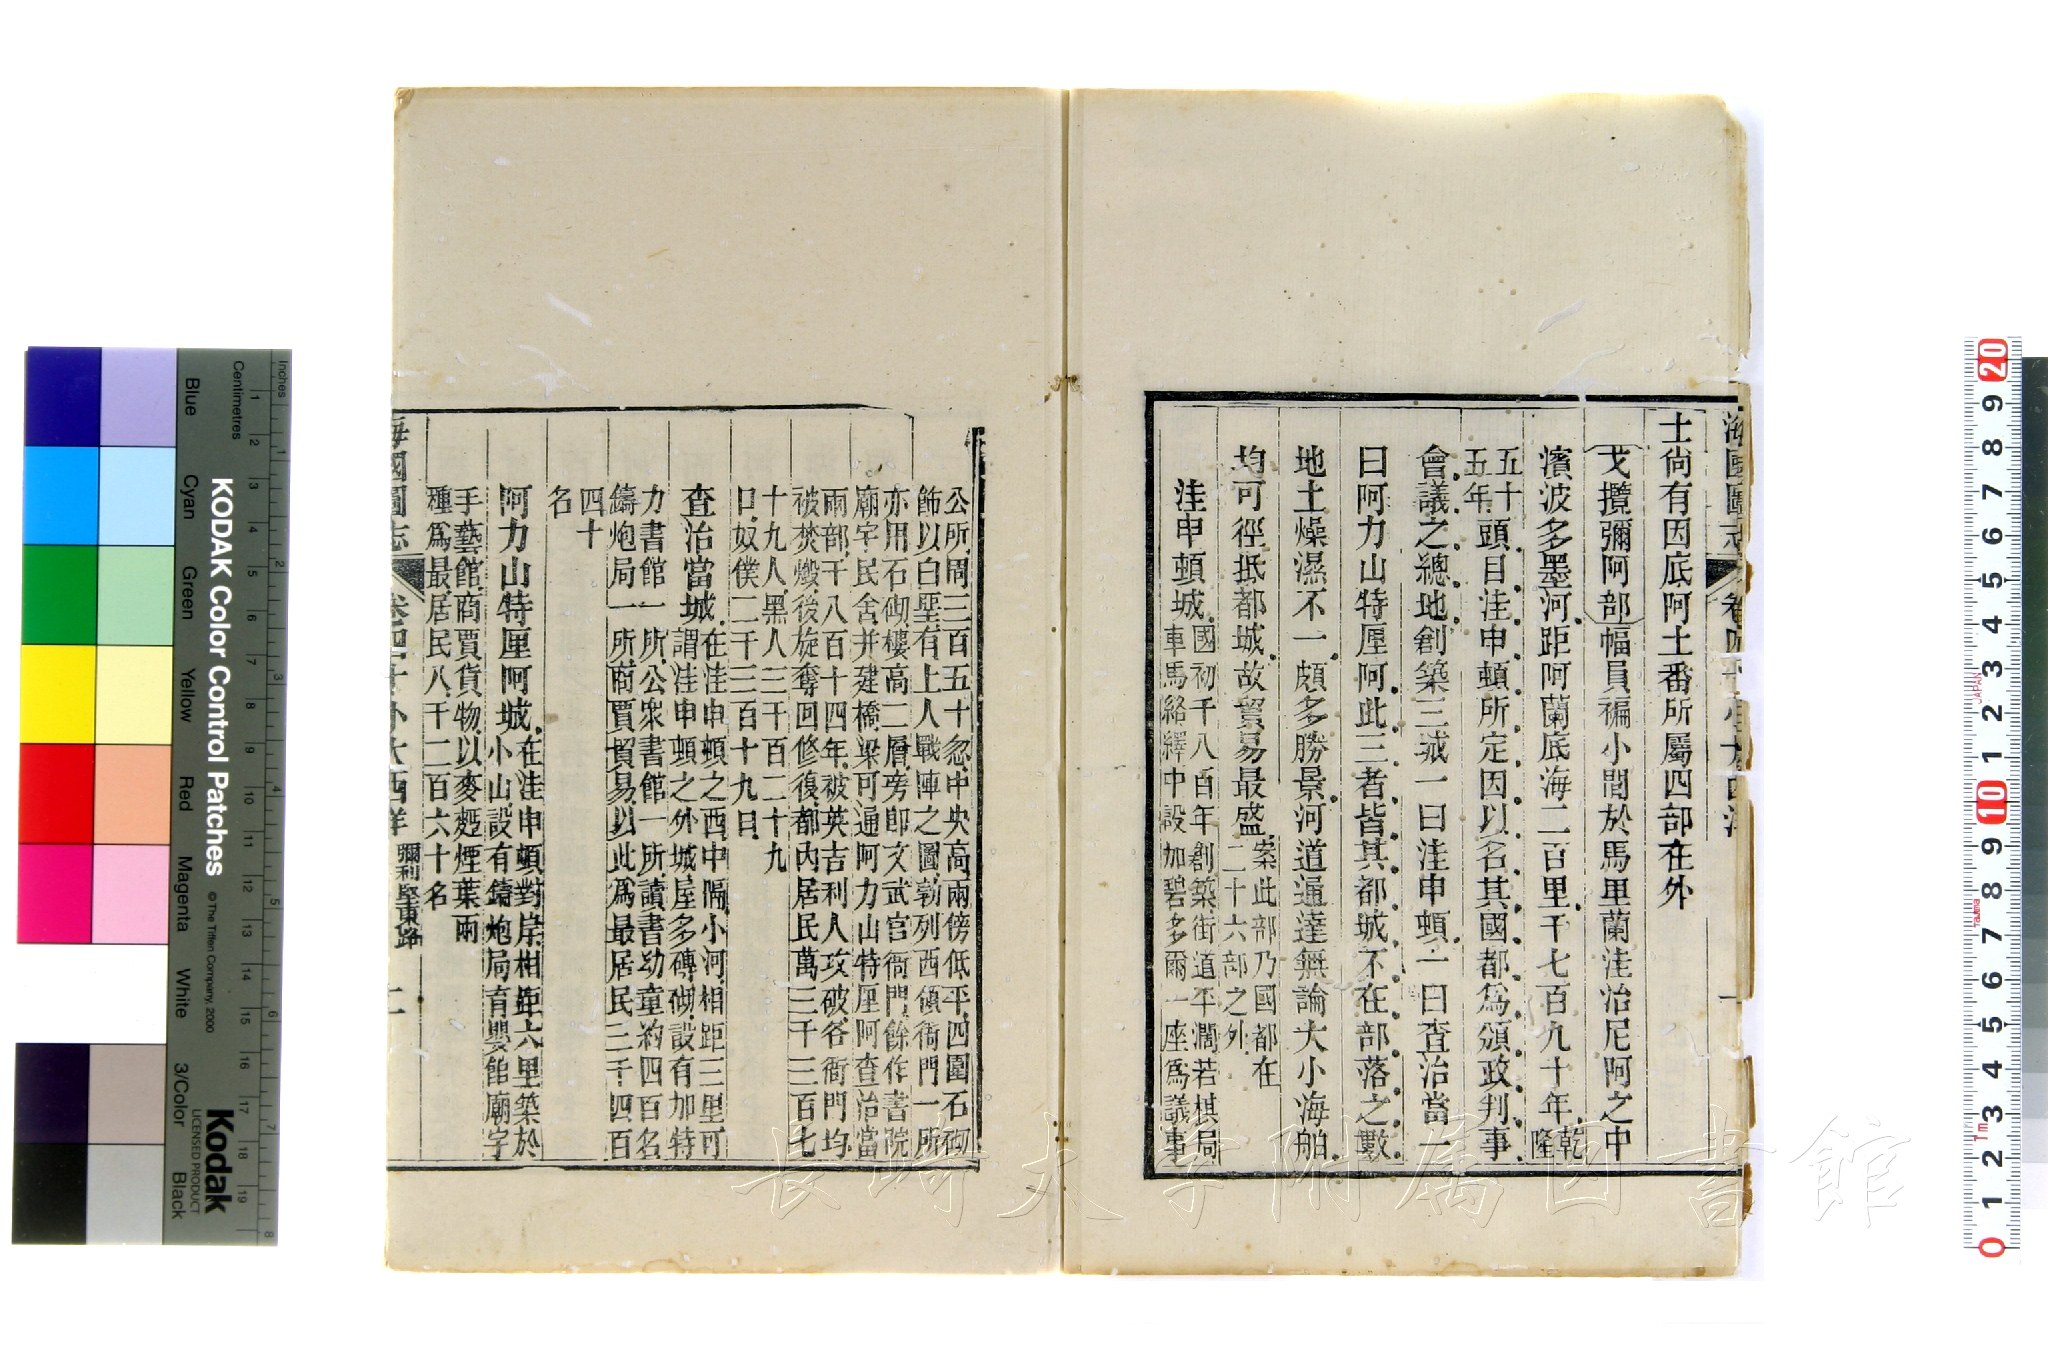 海國圖志 卷四十 外大西洋 一
士尙有因底阿土番所屬四部在外
戈攬彌阿部幅員褊小間於馬里蘭洼治尼阿之中
濱波多墨河距阿蘭底海二百里千七百九十年乾隆
五十五年頭目洼申頓所定因以名其國都爲頒政判事
會議之總地創築三城一曰洼申頓一曰查治當一
曰阿力山特厘阿此三者皆其都城不在部落之數
地土燥濕不一頗多勝景河道通達無論大小海舶
均可徑抵都城故貿易最盛案此部乃國都在
二十六部之外
洼申頓城國初千八百年創築街道平濶若棋局
車馬絡繹中設加碧多爾一座爲議事
公所周三百五十忽中央高兩傍低平四圍石砌
飾以白堊有上人戰陣之圖勒列西領衙門一所
亦用石砌樓高二層旁卽文武官衙門餘作書院
廟宇民舍并建橋梁可通阿力山特厘阿查治當
兩部千八百十四年被英吉利人攻破各衙門均
被焚燬後旋奪回修復都內居民萬三千三百七
十九人黑人三千百二十九
口奴僕二千三百十九口
查治當城在洼申頓之西中隔小河相距三里可
謂洼申頓之外城屋多磚砌設有加特
力書館一所公衆書館一所讀書幼童約四百名
鑄炮局一所商賈貿易以此爲最居民三千四百
四十
名
阿力山特厘阿城在洼申頓對岸相距六里築於
小山設有鑄炮局育嬰館廟宇
手藝館商賈貨物以麥麪煙葉兩
種爲最居民八千二百六十名
海國圖志 卷四十 外大西洋 彌利堅東路 二
長崎大学附属図書館
KODAK Color Control Patches
© The Tiffen Company, 2000
Kodak
LICENSED PRODUCT
Inches 1 2 3 4 5 6 7 8
Centimetres 1 2 3 4 5 6 7 8 9 10 11 12 13 14 15 16 17 18 19
Blue Cyan Green Yellow Red Magenta White 3/Color Black
0 1 2 3 4 5 6 7 8 9 10 1 2 3 4 5 6 7 8 9 20
JAPAN